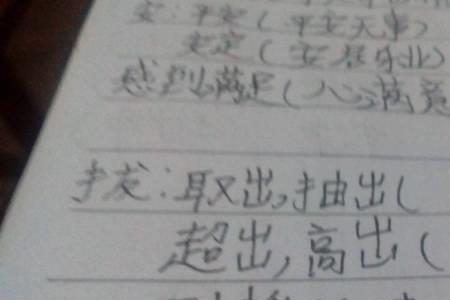 安：平安（平安无事）
安定（安居乐业）
感到满足（心满意
拔：取出，抽出（
超出，高出（